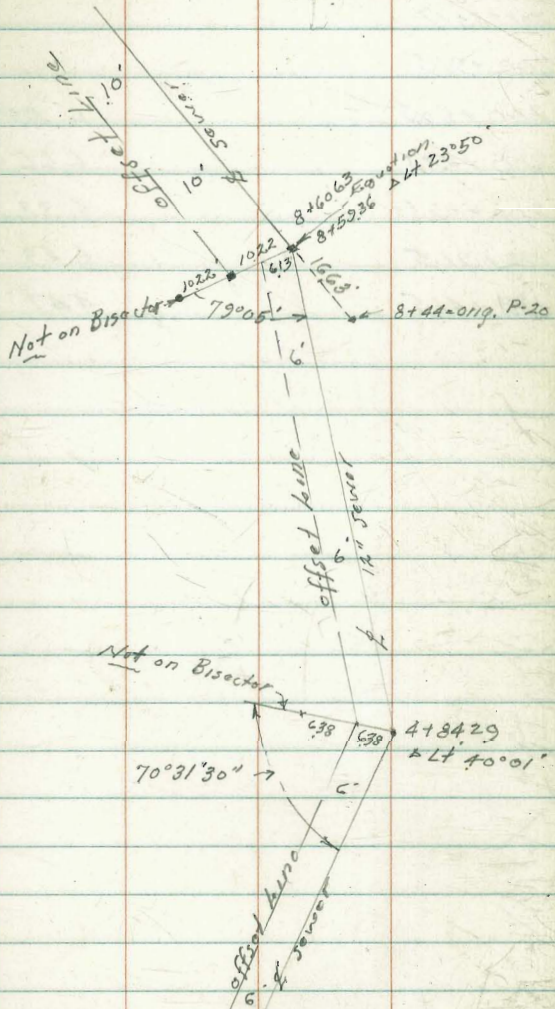 offset Line
10'
10'
℄ sewer
8+60.63 Equation.
8+59.36 Δ Lt 23°50'
10.22
10.22'
6.13
16.63'
Not on Bisector
79°05'
8+44 = orig. P-20
6'
offset Line
12" sewer
6'
℄
Not on Bisector
6.38
6.38
4+84.29
Δ Lt. 40°01'
70°31'30"
6'
offset Line
℄ sewer
6'